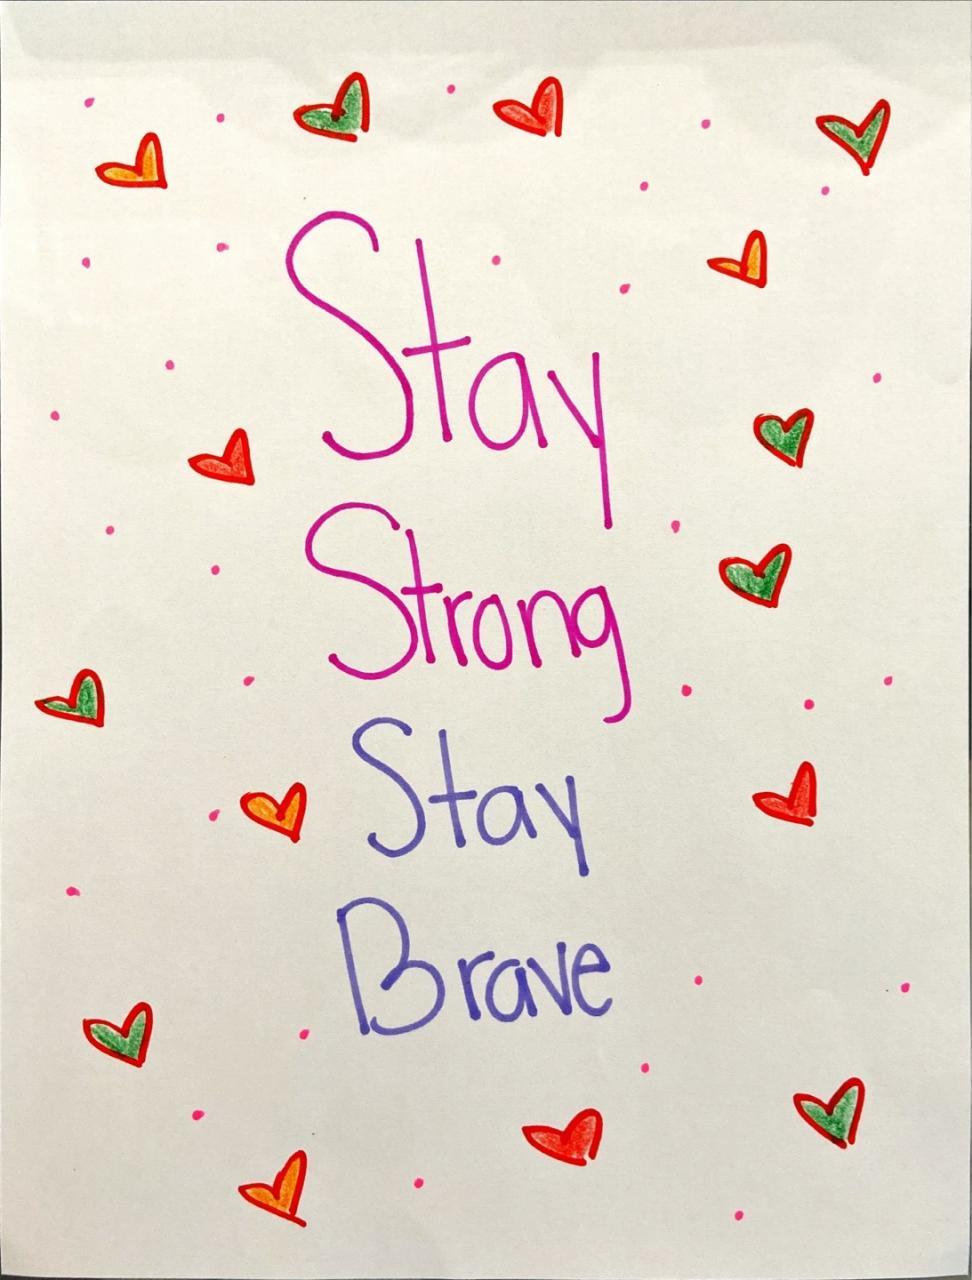 Stay
Strong
Stay
Brave